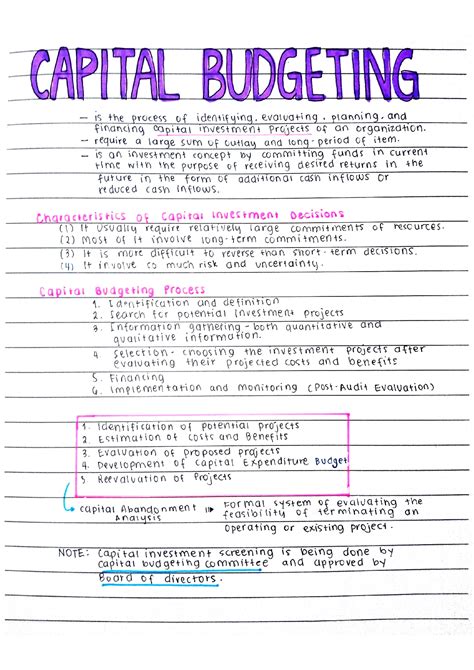 CAPITAL BUDGETING
- is the process of identifying, evaluating, planning, and
financing capital investment projects of an organization.
- require a large sum of outlay and long-period of item.
- is an investment concept by committing funds in current
time with the purpose of receiving desired returns in the
future in the form of additional cash inflows or
reduced cash inflows.
Characteristics of Capital Investment Decisions
(1) It usually require relatively large commitments of resources.
(2) Most of it involve long-term commitments.
(3) It is more difficult to reverse than short-term decisions.
(4) It involve so much risk and uncertainty.
Capital Budgeting Process
1. Identification and definition
2. Search for potential investment projects
3. Information gathering - both quantitative and
qualitative information.
4. Selection - choosing the investment projects after
evaluating their projected costs and benefits
5. Financing
6. Implementation and monitoring (Post-Audit Evaluation)
1. Identification of potential projects
2. Estimation of costs and Benefits
3. Evaluation of proposed projects
4. Development of Capital Expenditure Budget
5. Reevaluation of Projects
Capital Abandonment Analysis ⇛ Formal system of evaluating the
feasibility of terminating an
operating or existing project.
NOTE: Capital investment screening is being done by
capital budgeting committee and approved by
Board of directors.